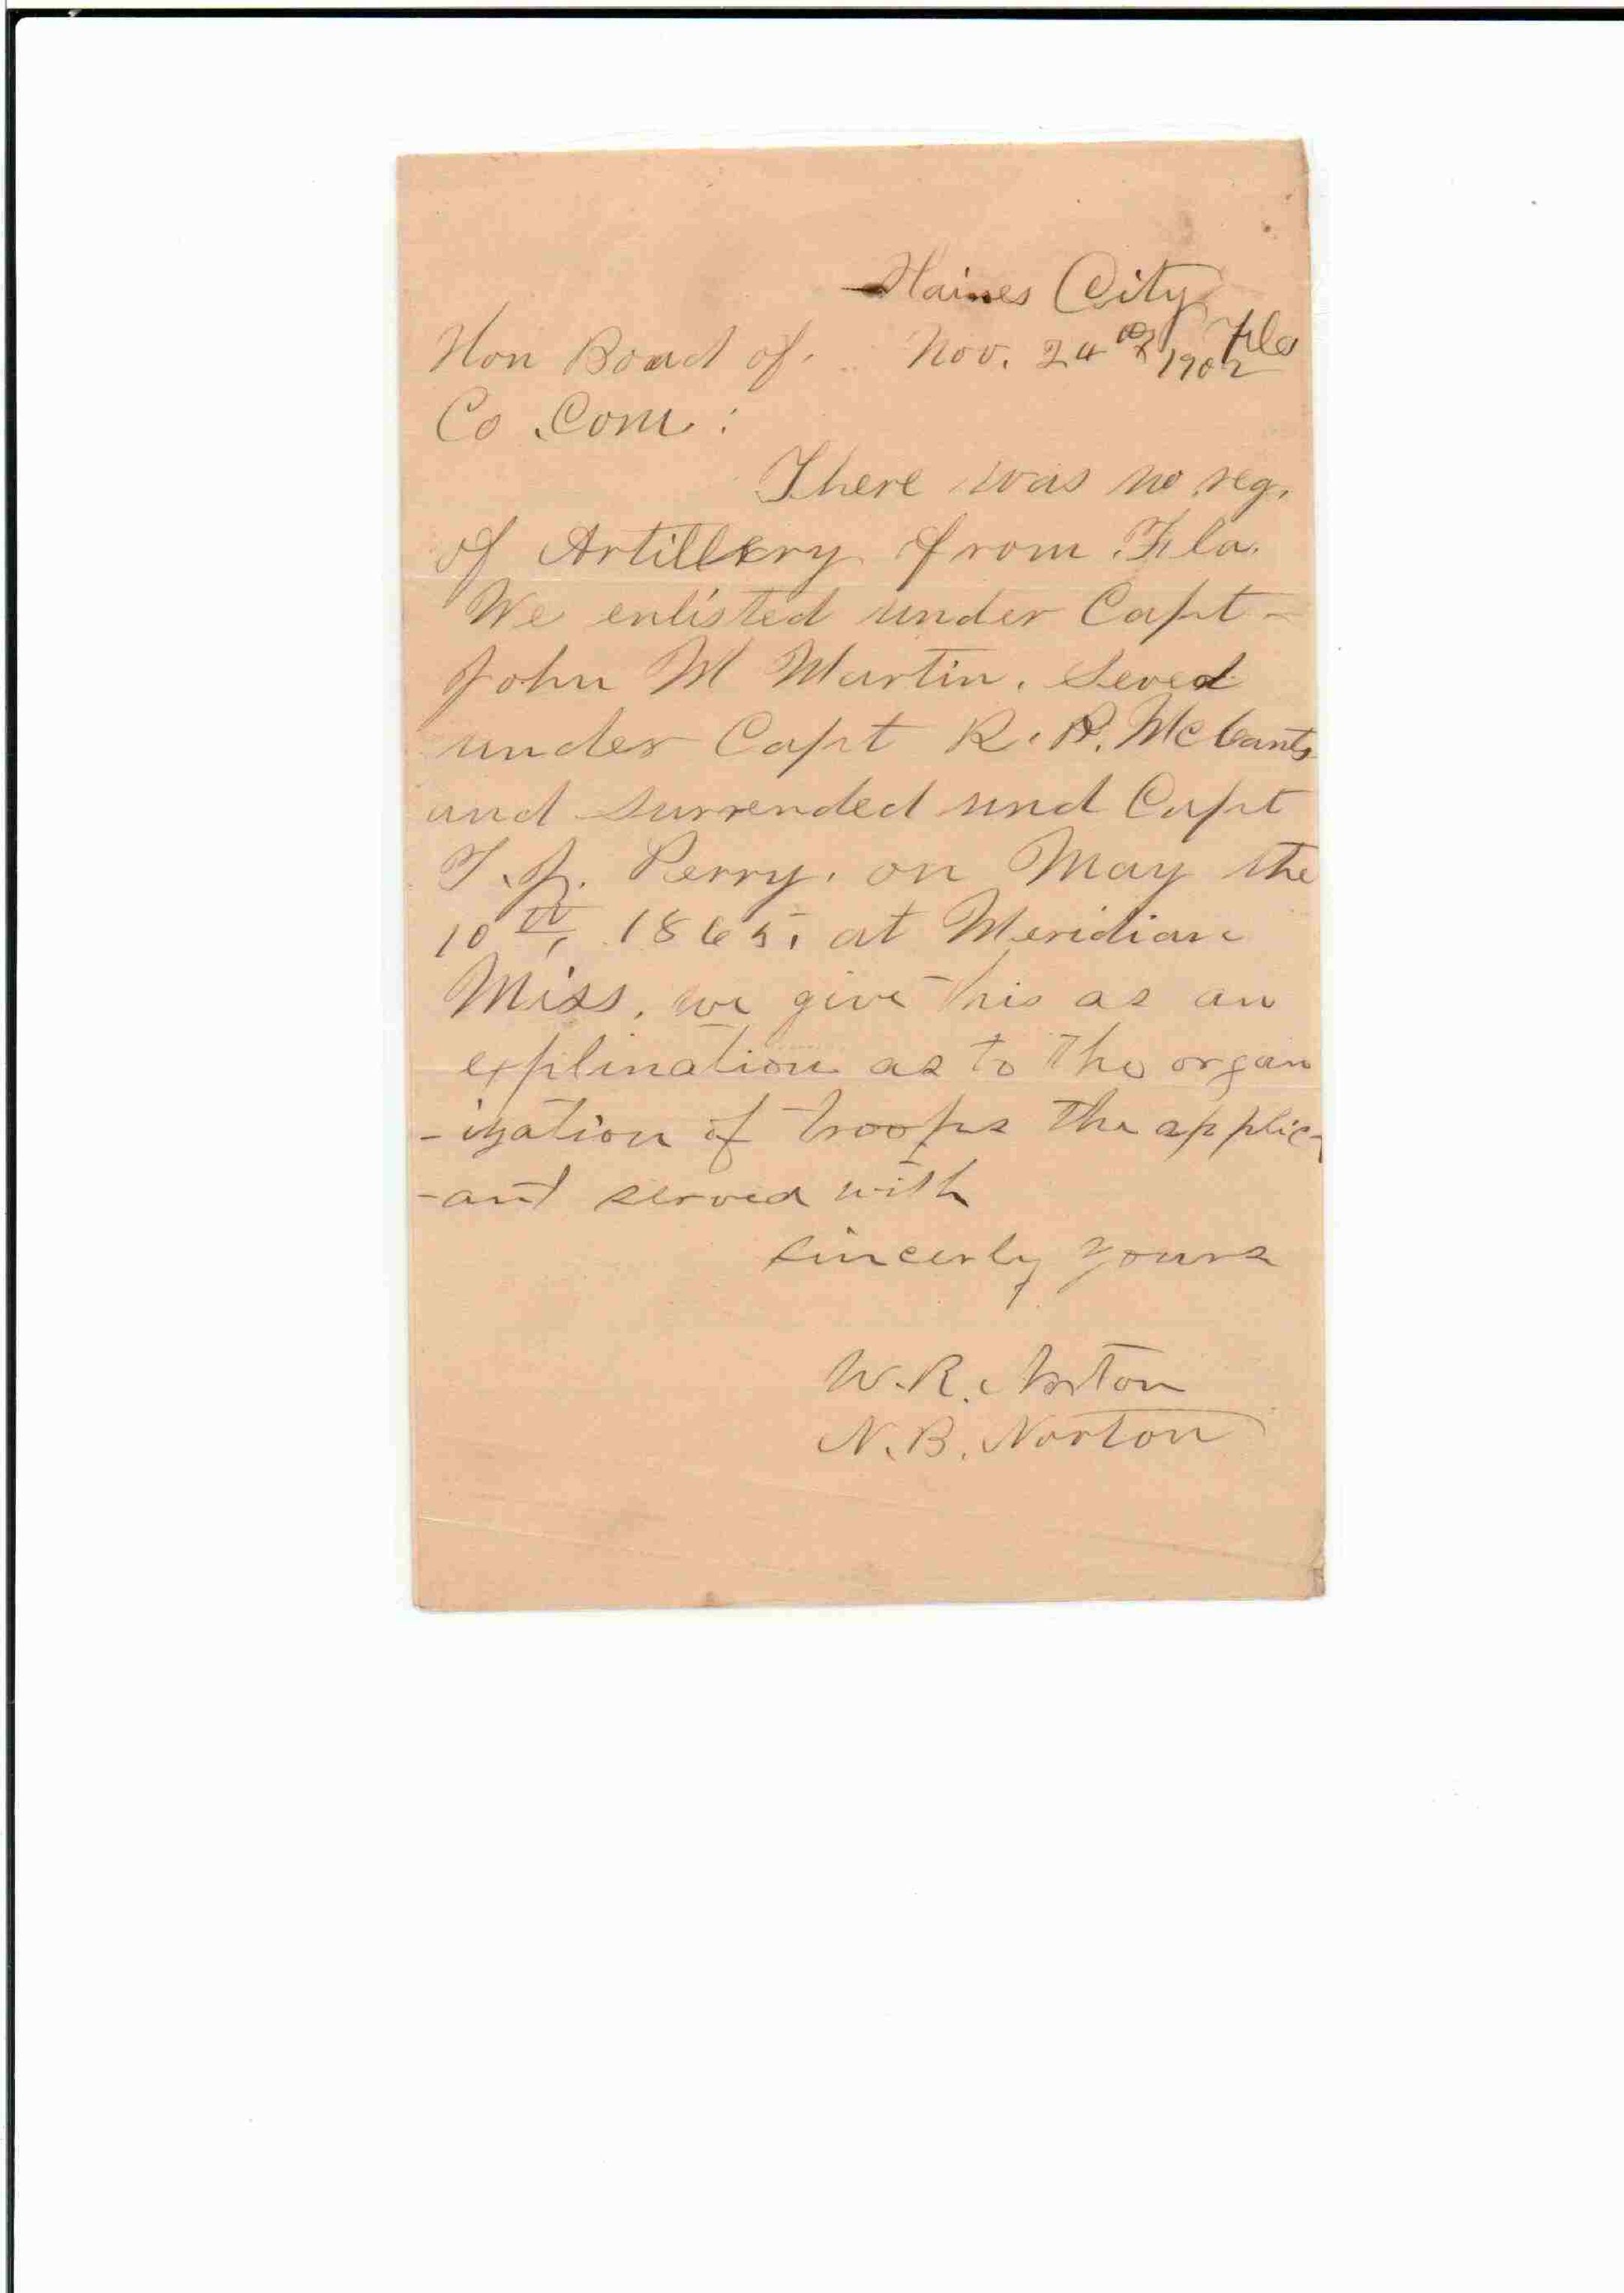 Haines City
Fla
Hon Boad of Nov. 24 1902
Co. Com:
There was no reg.
of Artillery from Fla.
We enlisted under Capt -
John M Martin. Seved
under Capt R. P. McCants
and surrended und Capt
T. J. Perry, on May the
10th, 1865, at Meridian
Miss. we give this as an
explination as to the organ
-ization of troops the applic-
-ant served with
Sincerly yours
W. R. Norton
N. B. Norton